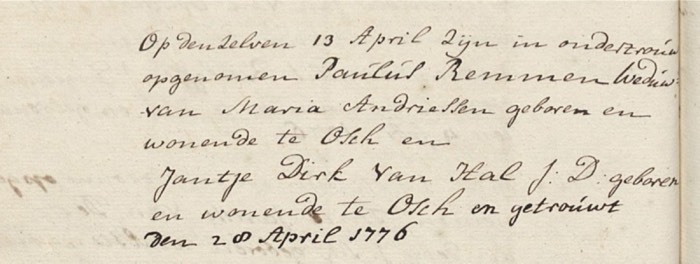 Op den zelven 13 April Zijn in ondertrouw
opgenomen Paulus Remmen Weduw:
van Maria Andriessen geboren en
wonende te Osch en
Jantje Dirk van Hal J: D: geboren
en wonende te Osch en getrouwt
den 28 April 1776